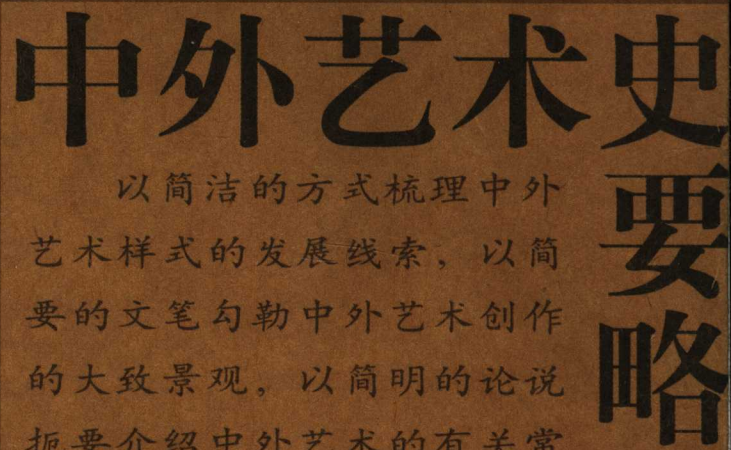 中外艺术史要略
以简洁的方式梳理中外
艺术样式的发展线索，以简
要的文笔勾勒中外艺术创作
的大致景观，以简明的论说
扼要介绍中外艺术的有关常